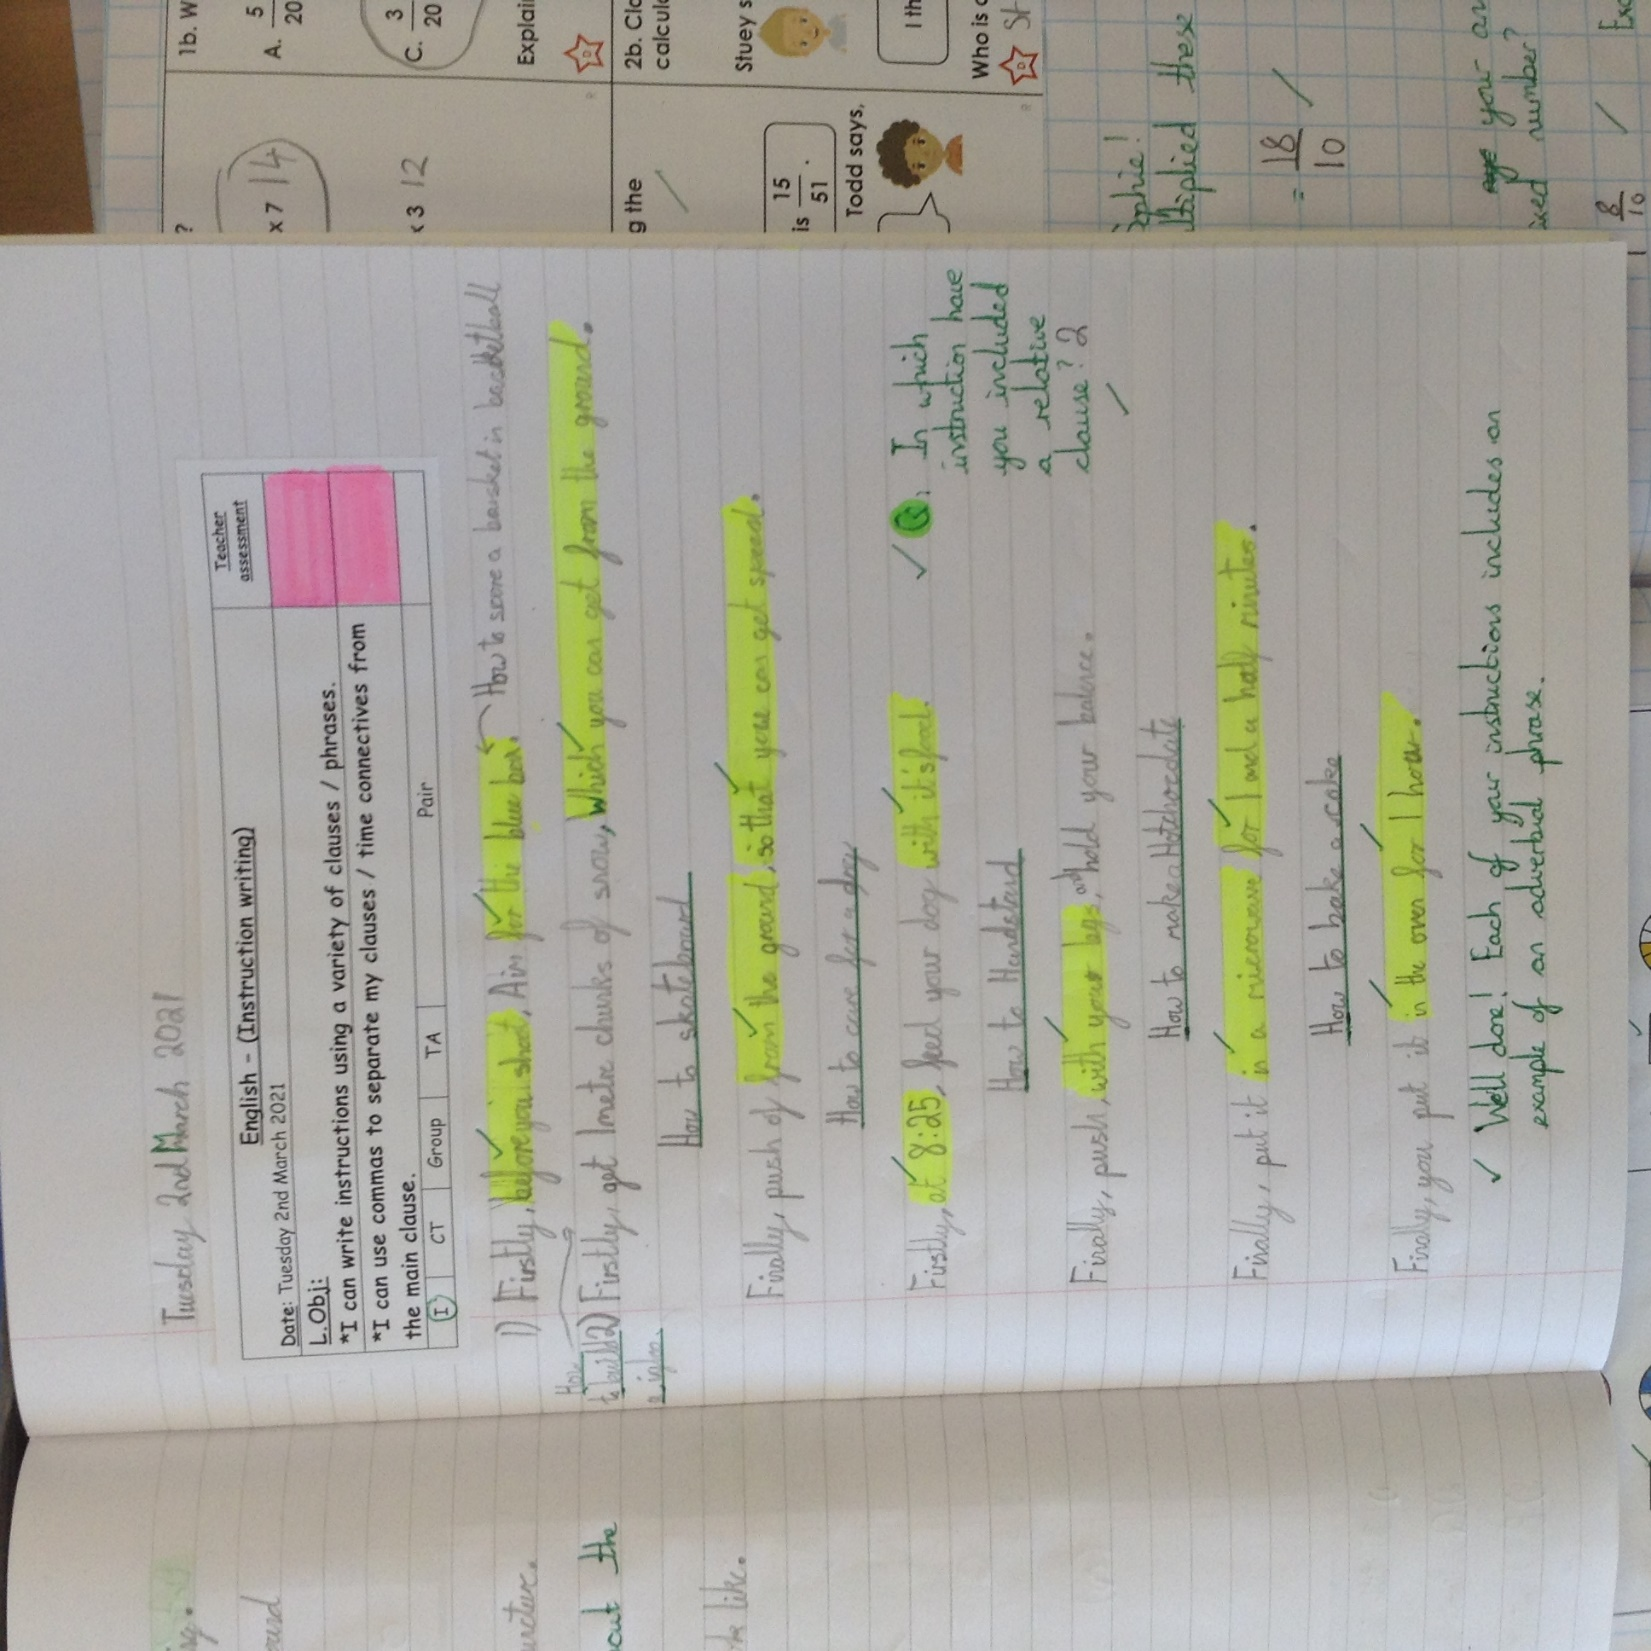 Tuesday 2nd March 2021
English - (Instruction writing)
Teacher
assessment
Date: Tuesday 2nd March 2021
L.Obj:
*I can write instructions using a variety of clauses / phrases.
*I can use commas to separate my clauses / time connectives from
the main clause.
I CT Group TA Pair
1) Firstly, before you shoot, Aim for the blue box. How to score a basket in basketball
How
to build
a igloo.
2) Firstly, get 1metre chunks of snow, Which you can get from the ground.
How to skateboard
Finally, push of from the ground, so that you can get speed.
How to care for a dog
Firstly, at 8:25, feed your dog with it's food.
Q. In which
instruction have
you included
a relative
clause? 2
How to Handstand
Finally, push, with your legs, and hold your balance.
How to make a Hotchocolate
Finally, put it in a microwave for 1 and a half minutes.
How to bake a cake
Finally, you put it in the oven for 1 hour.
Well done! Each of your instructions includes an
example of an adverbial phrase.
1b. W
?
A. 5/20
x 7 14
C. 3/20
x 3 12
Explain
2b. Cla
calcula
g the
Stuey s
is 15/51 .
Todd says,
I th
Who is c
St
ophie!
ltiplied these
= 18/10
you an
ixed number?
8/10
Exc
ng.
ard
ucture.
out the
the like.